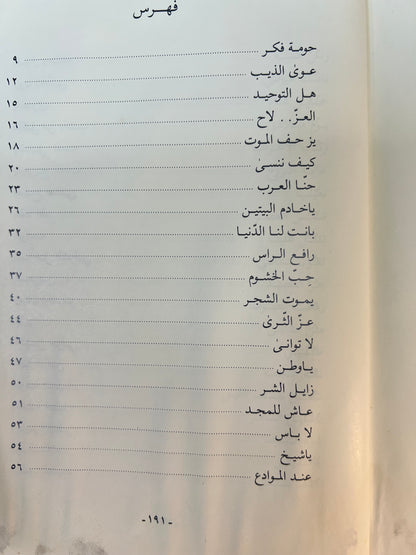 فهرس
حومة فكر ... ٩
عوىٰ الذيب ... ١٢
هل التوحيد ... ١٥
العزّ.. لاح ... ١٦
يزحف الموت ... ١٨
كيف ننسىٰ ... ٢٠
حنّا العرب ... ٢٣
ياخادم البيتين ... ٢٦
بانت لنا الدّنيا ... ٣٢
رافع الراس ... ٣٥
حِبّ الخشوم ... ٣٧
يموت الشجر ... ٤٠
عزّ الثّرىٰ ... ٤٤
لا توانىٰ ... ٤٦
ياوطن ... ٤٧
زايل الشر ... ٥٠
عاش للمجد ... ٥١
لا باس ... ٥٣
ياشيخ ... ٥٤
عند الموادع ... ٥٦
-١٩١-